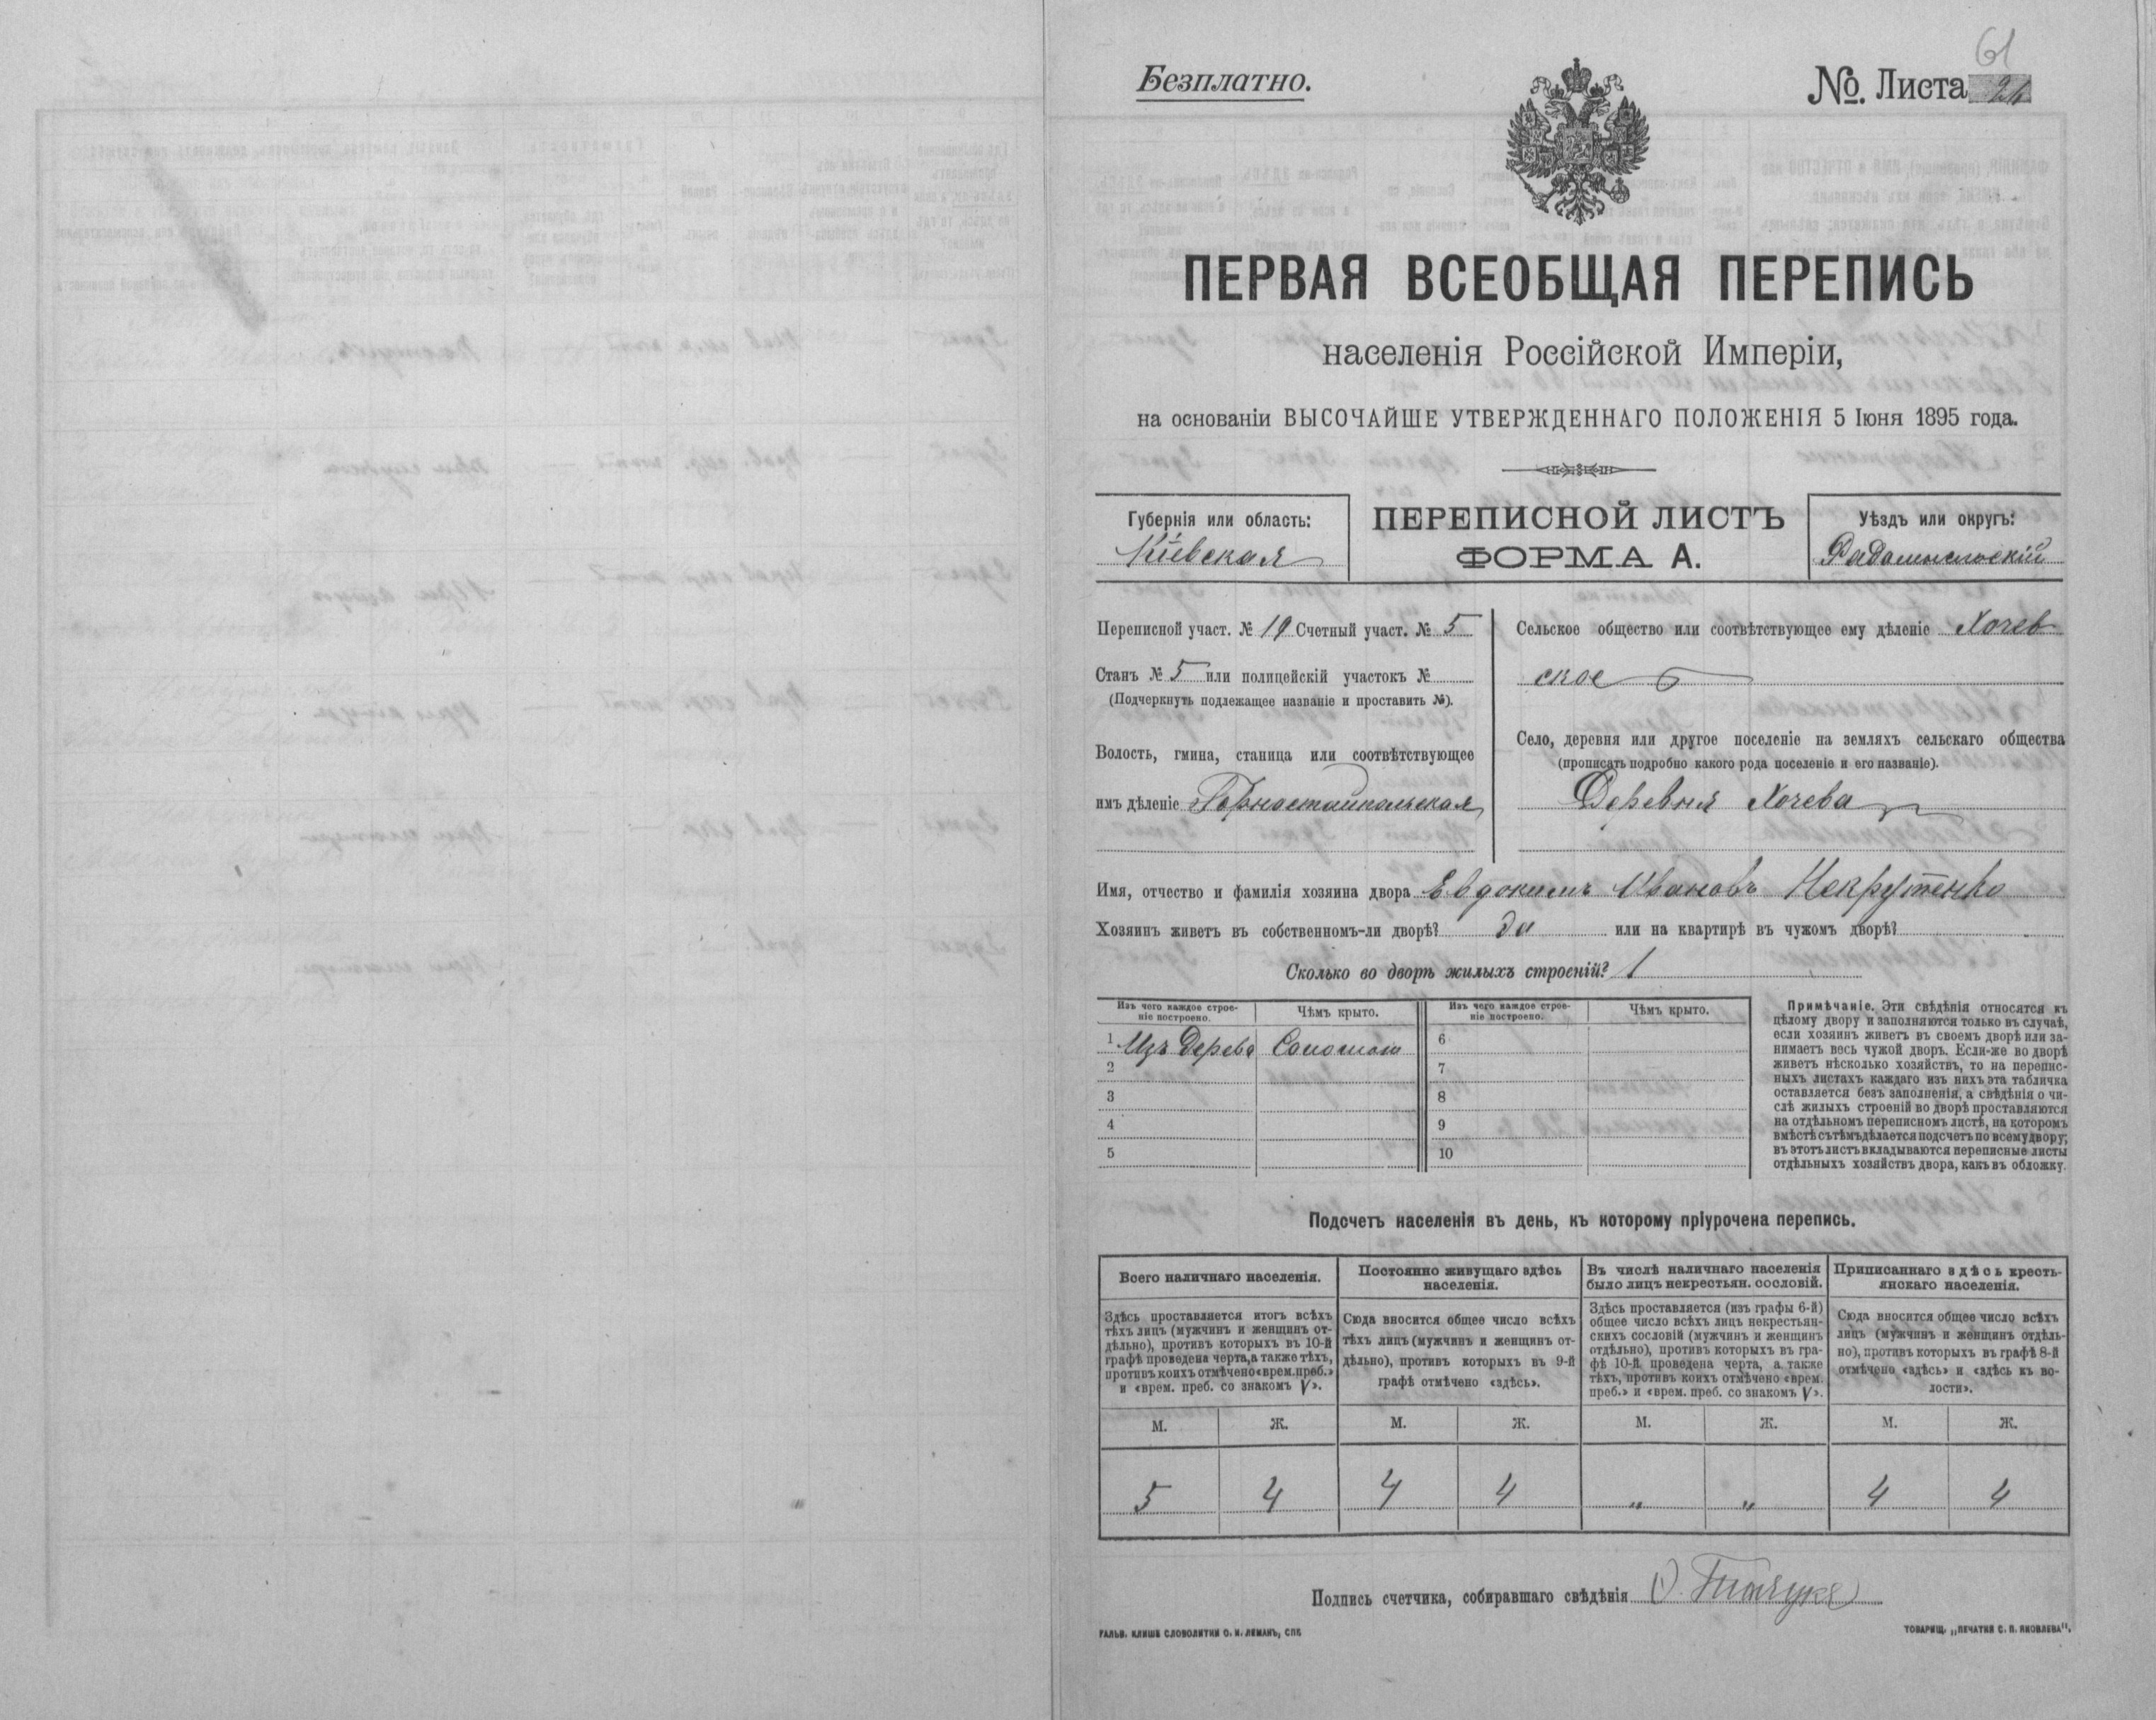 61
Безплатно.
№. Листа
ПЕРВАЯ ВСЕОБЩАЯ ПЕРЕПИСЬ
населенія Россійской Имперіи,
на основаніи ВЫСОЧАЙШЕ УТВЕРЖДЕННАГО ПОЛОЖЕНІЯ 5 Іюня 1895 года.
Губернія или область:
Кіевская
ПЕРЕПИСНОЙ ЛИСТЪ
ФОРМА А.
Уѣздъ или округъ:
Радомысльскій
Переписной участ. № 19 Счетный участ. № 5
Станъ № 5 или полицейскій участокъ №
(Подчеркнуть подлежащее названіе и проставить №).
Волость, гмина, станица или соотвѣтствующее
имъ дѣленіе Горностайпольская
Сельское общество или соотвѣтствующее ему дѣленіе Хочев
ское
Село, деревня или другое поселеніе на земляхъ сельскаго общества
(прописать подробно какого рода поселеніе и его названіе).
Деревня Хочева
Имя, отчество и фамилія хозяина двора Евдокимъ Ивановъ Некрутенко
Хозяинъ живетъ въ собственномъ-ли дворѣ? да или на квартирѣ въ чужомъ дворѣ?
Сколько во дворѣ жилыхъ строеній? 1
Изъ чего каждое строе-
ніе построено.
Чѣмъ крыто.
Изъ чего каждое строе-
ніе построено.
Чѣмъ крыто.
1 Изъ дерева Соломою
2
3
4
5
6
7
8
9
10
Примѣчаніе. Эти свѣдѣнія относятся къ
цѣлому двору и заполняются только въ случаѣ,
если хозяинъ живетъ въ своемъ дворѣ или за-
нимаетъ весь чужой дворъ. Если-же во дворѣ
живетъ нѣсколько хозяйствъ, то на перепис-
ныхъ листахъ каждаго изъ нихъ эта табличка
оставляется безъ заполненія, а свѣдѣнія о чи-
слѣ жилыхъ строеній во дворѣ проставляются
на отдѣльномъ переписномъ листѣ, на которомъ
вмѣстѣ съ тѣмъ дѣлается подсчетъ по всему двору;
въ этотъ листъ вкладываются переписные листы
отдѣльныхъ хозяйствъ двора, какъ въ обложку.
Подсчетъ населенія въ день, къ которому пріурочена перепись.
Всего наличнаго населенія.
Здѣсь проставляется итогъ всѣхъ
тѣхъ лицъ (мужчинъ и женщинъ от-
дѣльно), противъ которыхъ въ 10-й
графѣ проведена черта, а также тѣхъ,
противъ коихъ отмѣчено «врем. преб.»
и «врем. преб. со знакомъ V».
Постоянно живущаго здѣсь
населенія.
Сюда вносится общее число всѣхъ
тѣхъ лицъ (мужчинъ и женщинъ от-
дѣльно), противъ которыхъ въ 9-й
графѣ отмѣчено «здѣсь».
Въ числѣ наличнаго населенія
было лицъ некрестьян. сословій.
Здѣсь проставляется (изъ графы 6-й)
общее число всѣхъ лицъ некрестьян-
скихъ сословій (мужчинъ и женщинъ
отдѣльно), противъ которыхъ въ гра-
фѣ 10-й проведена черта, а также
тѣхъ, противъ коихъ отмѣчено «врем.
преб.» и «врем. преб. со знакомъ V».
Приписаннаго здѣсь кресть-
янскаго населенія.
Сюда вносится общее число всѣхъ
лицъ (мужчинъ и женщинъ отдѣль-
но), противъ которыхъ въ графѣ 8-й
отмѣчено «здѣсь» и «здѣсь къ во-
лости».
М. Ж. М. Ж. М. Ж. М. Ж.
5 4 4 4 „ „ 4 4
Подпись счетчика, собиравшаго свѣдѣнія
ГАЛЬВ. КЛИШЕ СЛОВОЛИТНИ О. И. ЛЕМАНЪ, СПБ.
ТОВАРИЩ. „ПЕЧАТНЯ С. П. ЯКОВЛЕВА".